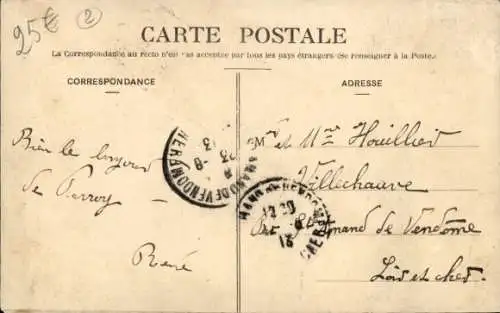 25€ 2
CARTE POSTALE
La Correspondance au recto n'est pas acceptée par tous les pays étrangers (se renseigner à la Poste).
CORRESPONDANCE
ADRESSE
Bien le bonjour
de Perroy
René
Mr et Mme Houillier
Villechauve
Par St Amand de Vendôme
Loir et Cher